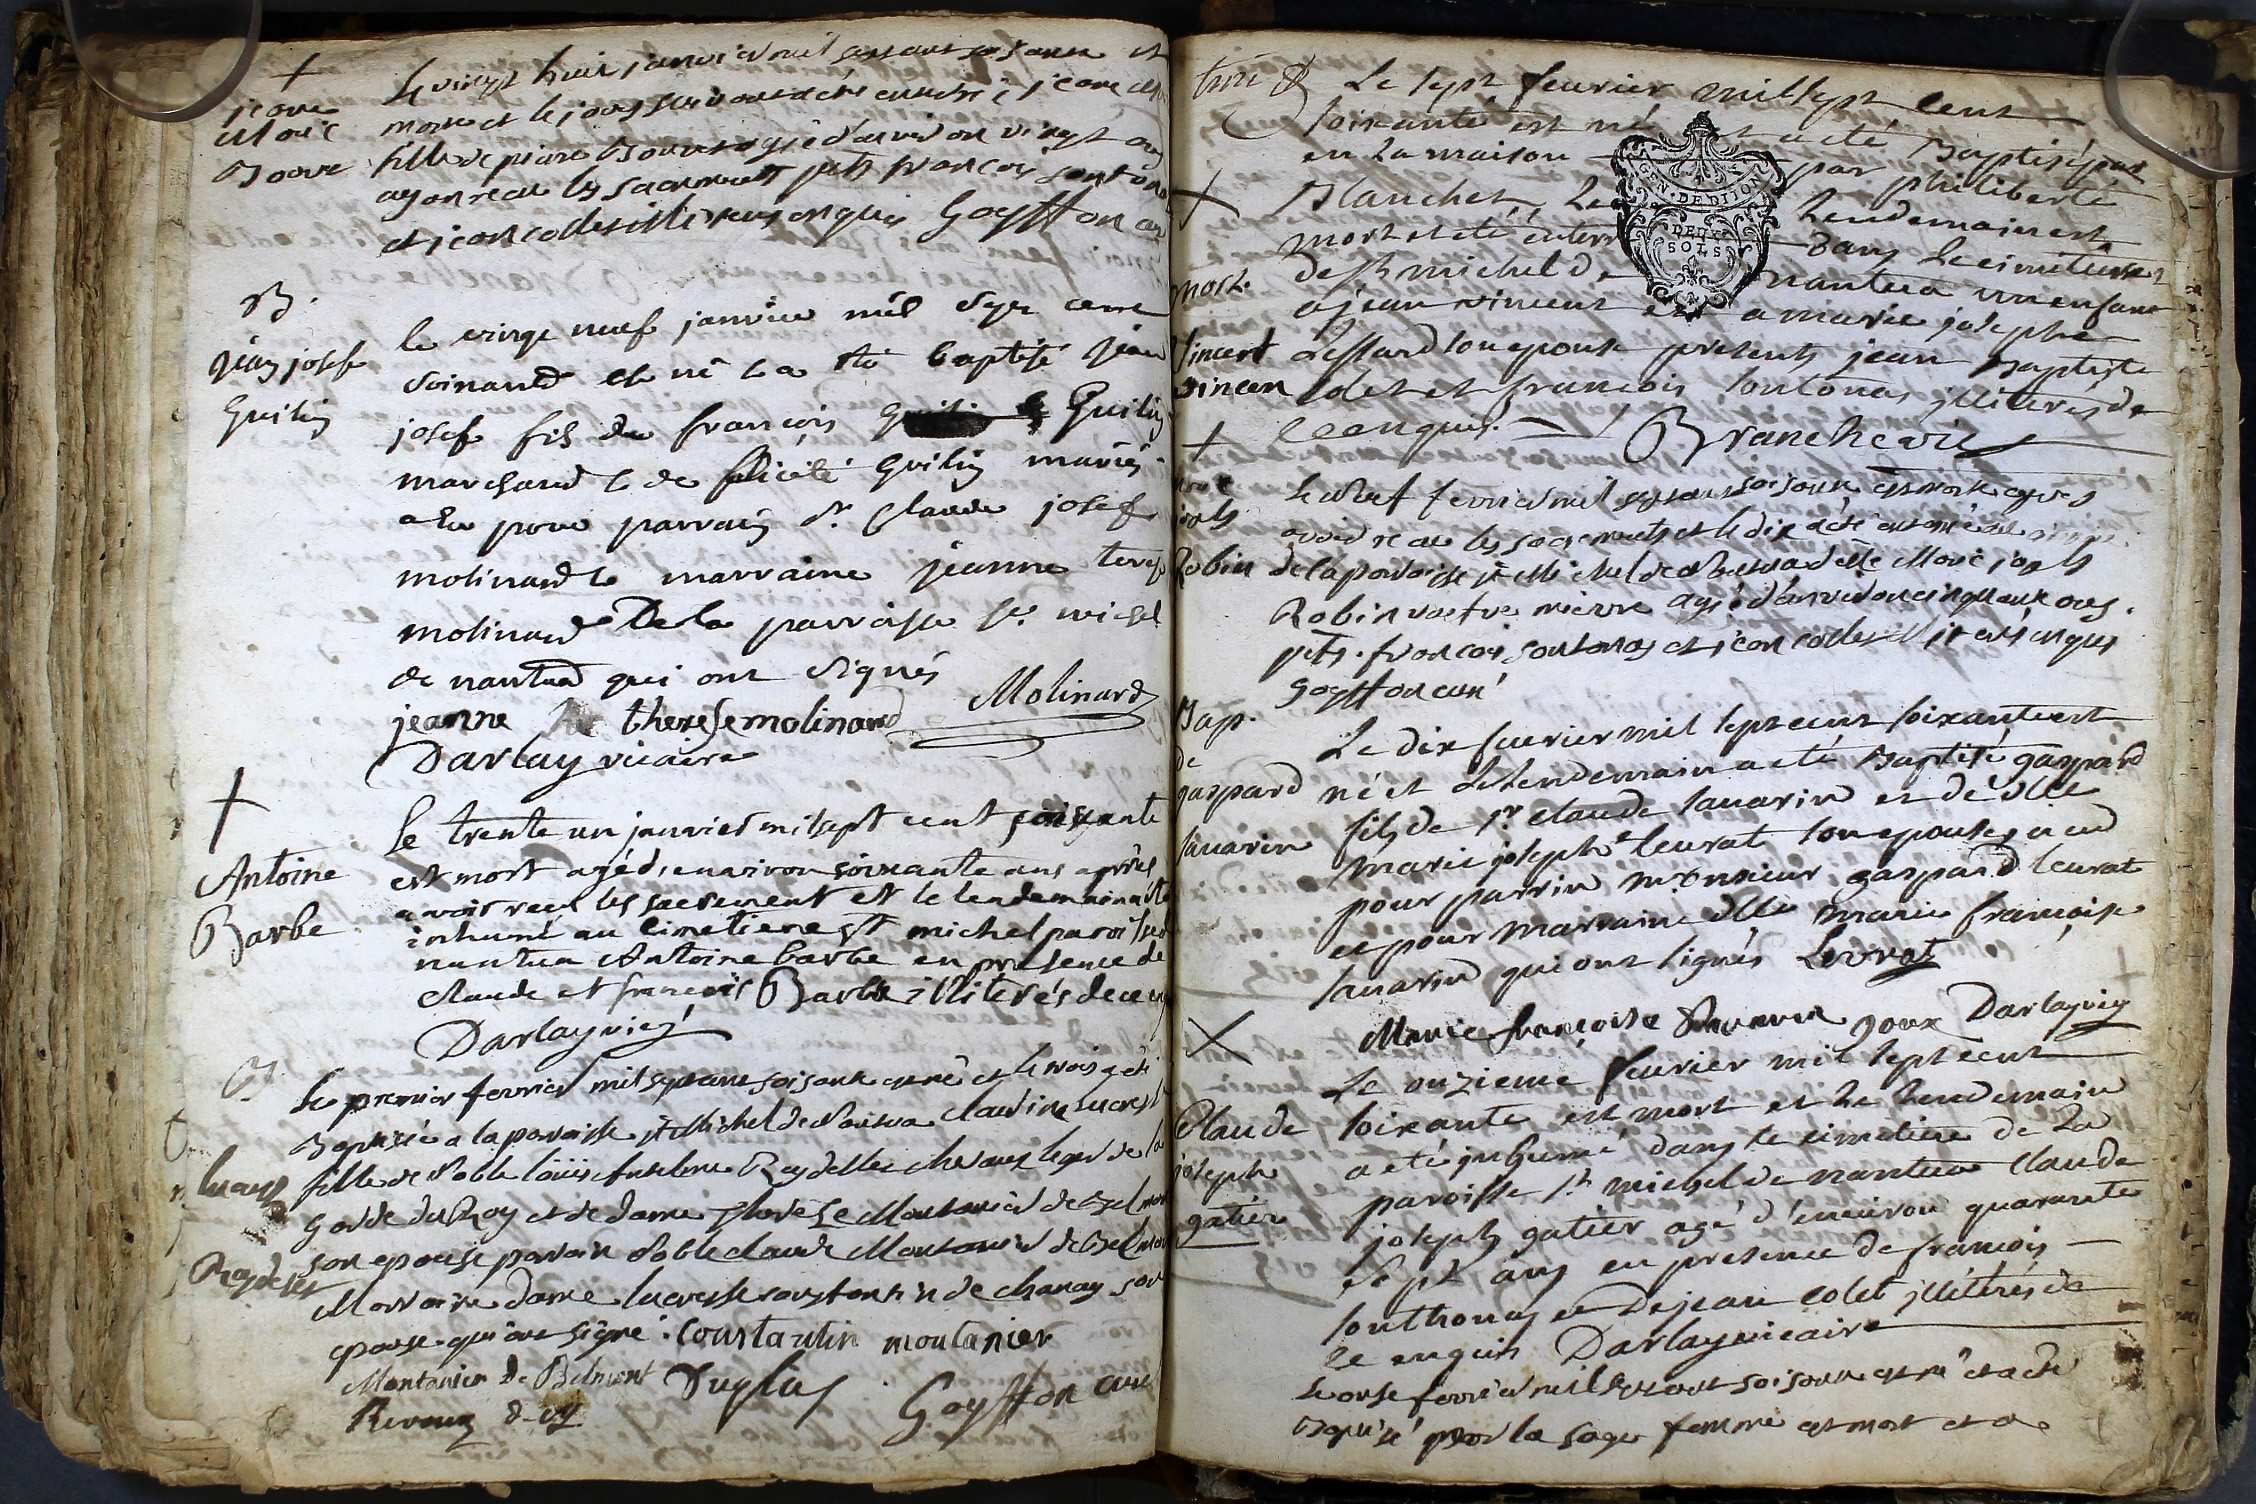 jeane
Marie
Le vingt huit janvier mil sept cent soisante et
morte et le jour suivant a été enterré jeane
fille de pierre agé d'anviron vingt ans
ayan recu les sacrements pnts francois sontonas
et jean collet illiterés enquis Goyffon curé
B.
jean josef
Guilin
le vingt neuf janvier mil sept cent
soixante est né & a été baptisé jean
josef fils de francois Guilin
marchand & de felicité Guilin mariés
a eu pour parrain sr. Claude josef
molinard & marraine jeanne terese
molinard De la parroisse st. michel
de nantua qui ont signés
jeanne therese molinard Molinard
Darlay vicaire
Antoine
Barbe
Le trente un janvier mil sept cent soixante
est mort agé d'environ soixante ans aprés
avoir reçu les sacrement et le lendemain a été
inhumé au cimetiere st michel paroisse de
nantua Antoine barbe en presence de
claude et francois Barbe illiterés de ce enq
Darlay vic
B
lucresse
Reydellet
Le premier fevrier mil sept cent soisante est né et le trois a été
Baptisée a la paroisse st Michel de Nantua claudine lucresse
fille de Noble loüis Anselme Reydellet chevaux leger de la
Garde du Roy et de dame Montanier de Belmont
son epouse parrain Noble claude Montanier de Belmont
Marraine dame lucresse constantin de chanay son
epouse qui ont signé. Constantin montanier
Montanier De Belmont Duplus Goyffon curé
trois
Le sept fevrier mil sept cent
soixante est né et a été Baptisé par
en La maison par philiberte
Blanchet Le Lendemain est
mort et été enterré dans Le cimetiere
de st michel de nantua un enfant
GEN. DE DIJON
DEUX
SOLS
mort.
Vincent
vincen
a jean vincent et a marie josephe
son epouse presents jean Baptiste
Colet et francois sontonas illiterés de
ce enquis.
Robin
Le neuf fevrier mil sept cent soisante est morte apres
avoir recue les sacrements et le dix a été enterrée au
de la paroisse st Michel de Nantua delle Marie josephe
Robin agé d'anviron cinquante ans.
pnts. francois sontonas et jean collet illiterés enquis
Goyffon curé
Bap.
de
gaspard
savarin
Le dix fevrier mil sept cent soixante est
né et Le Lendemain a eté Baptisé gaspard
fils de sr claude savarin et de dlle
marie josephe leurat son epouse a eu
pour parrin monsieur gaspard leurat
et pour marraine dlle marie francoise
savarin qui ont signés Levrat
Marie françoise Savarin Darlay vic
Claude
joseph
gatier
Le onzieme fevrier mil sept cent
soixante est mort et Le Lendemain
a eté inhumé dans le cimetiere de La
paroisse st michel de nantua Claude
joseph gatier agé d'environ quarante
sept ans en presence de francois
sonthonas et De jean colet illitérés de
ce enquis Darlay vicaire
Le onse fevrier mil sept cent soisante est né et a été
Baptisé par la sage femme est mort et a